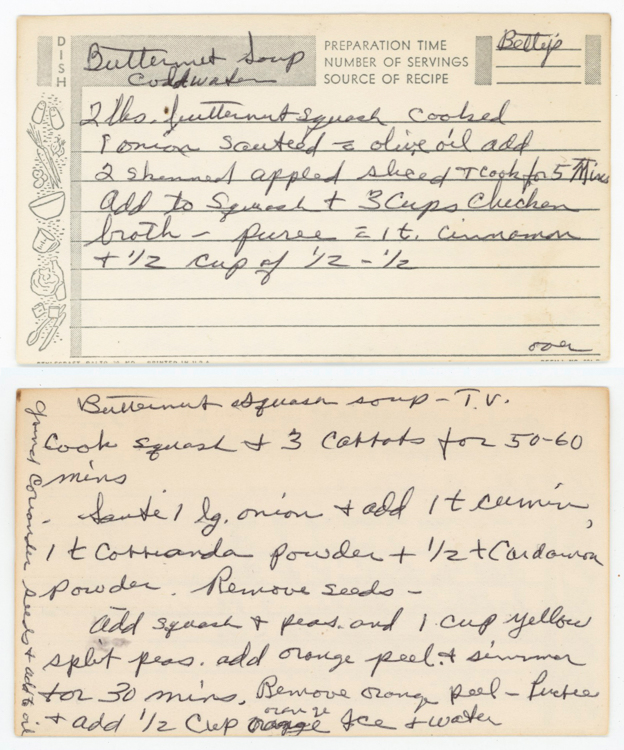 DISH
Butternut Soup
Coldwater
PREPARATION TIME
NUMBER OF SERVINGS
SOURCE OF RECIPE
Betty's
2 lbs. butternut squash cooked
1 onion sauteed = olive oil add
2 skinned apples sliced + cook for 5 Mins
Add to Squash + 3 Cups Chicken
broth - puree = 1 t. cinnamon
+ 1/2 cup of 1/2 - 1/2
over
PRINTED IN U.S.A.
Butternut Squash soup - T.V.
Cook squash + 3 Carrots for 50-60
mins
- Sauté 1 lg. onion + add 1 t cumin,
1 t Corrianda powder + 1/2 t Cardamon
powder. Remove seeds -
Add squash + peas. and 1 cup yellow
split peas. add orange peel. + simmer
for 30 mins. Remove orange peel - Puree
+ add 1/2 Cup orange Ice + water
orange
grind Coriander seeds + add to oil